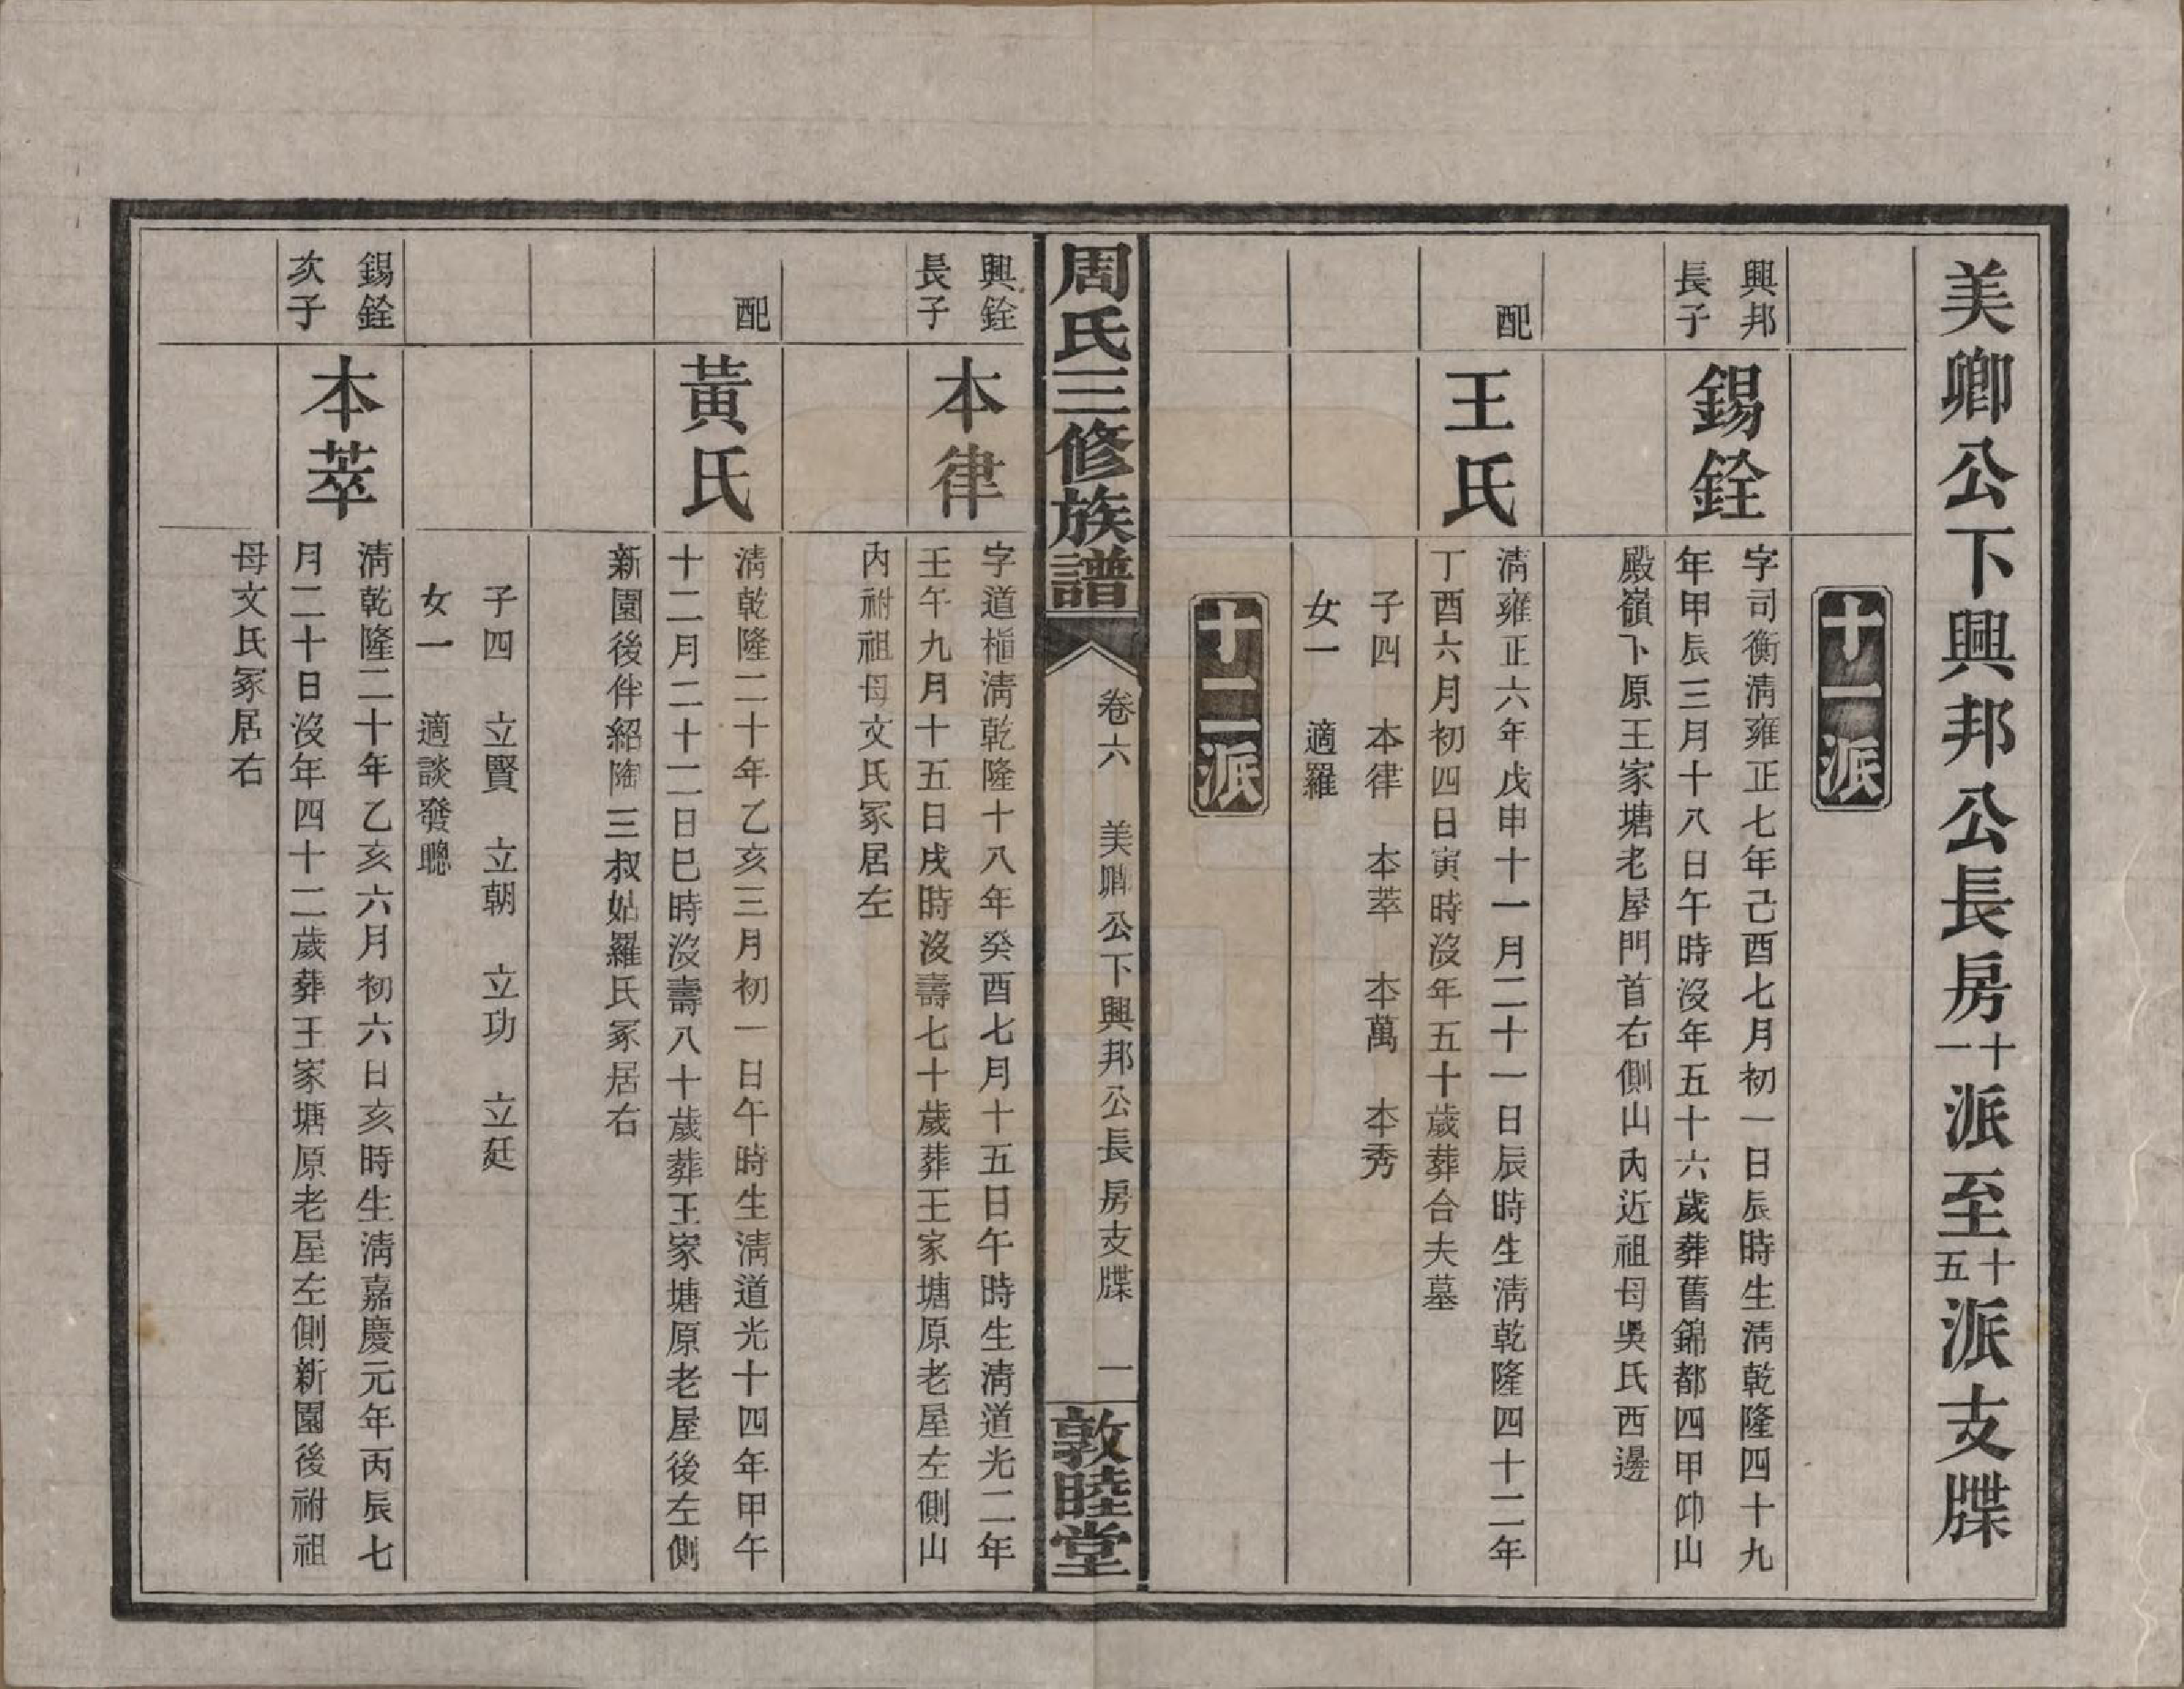 美卿公下興邦公長房十一派至十五派支牒
十一派
興邦
長子
錫銓
字司衡淸雍正七年己酉七月初一日辰時生淸乾隆四十九
年甲辰三月十八日午時沒年五十六歲葬舊錦都四甲仰山
殿嶺下原王家塘老屋門首右側山內近祖母吳氏西邊
配
王氏
淸雍正六年戊申十一月二十一日辰時生淸乾隆四十二年
丁酉六月初四日寅時沒年五十歲葬合夫墓
子四 本律 本萃 本萬 本秀
女一 適羅
十二派
周氏三修族譜
卷六 美卿公下興邦公長房支牒 一
敦睦堂
興銓
長子
本律
字道楦淸乾隆十八年癸酉七月十五日午時生淸道光二年
壬午九月十五日戌時沒壽七十歲葬王家塘原老屋左側山
內祔祖母文氏冢居左
配
黃氏
淸乾隆二十年乙亥三月初一日午時生淸道光十四年甲午
十二月二十二日巳時沒壽八十歲葬王家塘原老屋後左側
新園後伴紹陶三叔姑羅氏冢居右
子四 立賢 立朝 立功 立廷
女一 適談發聰
錫銓
次子
本萃
淸乾隆二十年乙亥六月初六日亥時生淸嘉慶元年丙辰七
月二十日沒年四十二歲葬王家塘原老屋左側新園後祔祖
母文氏冢居右